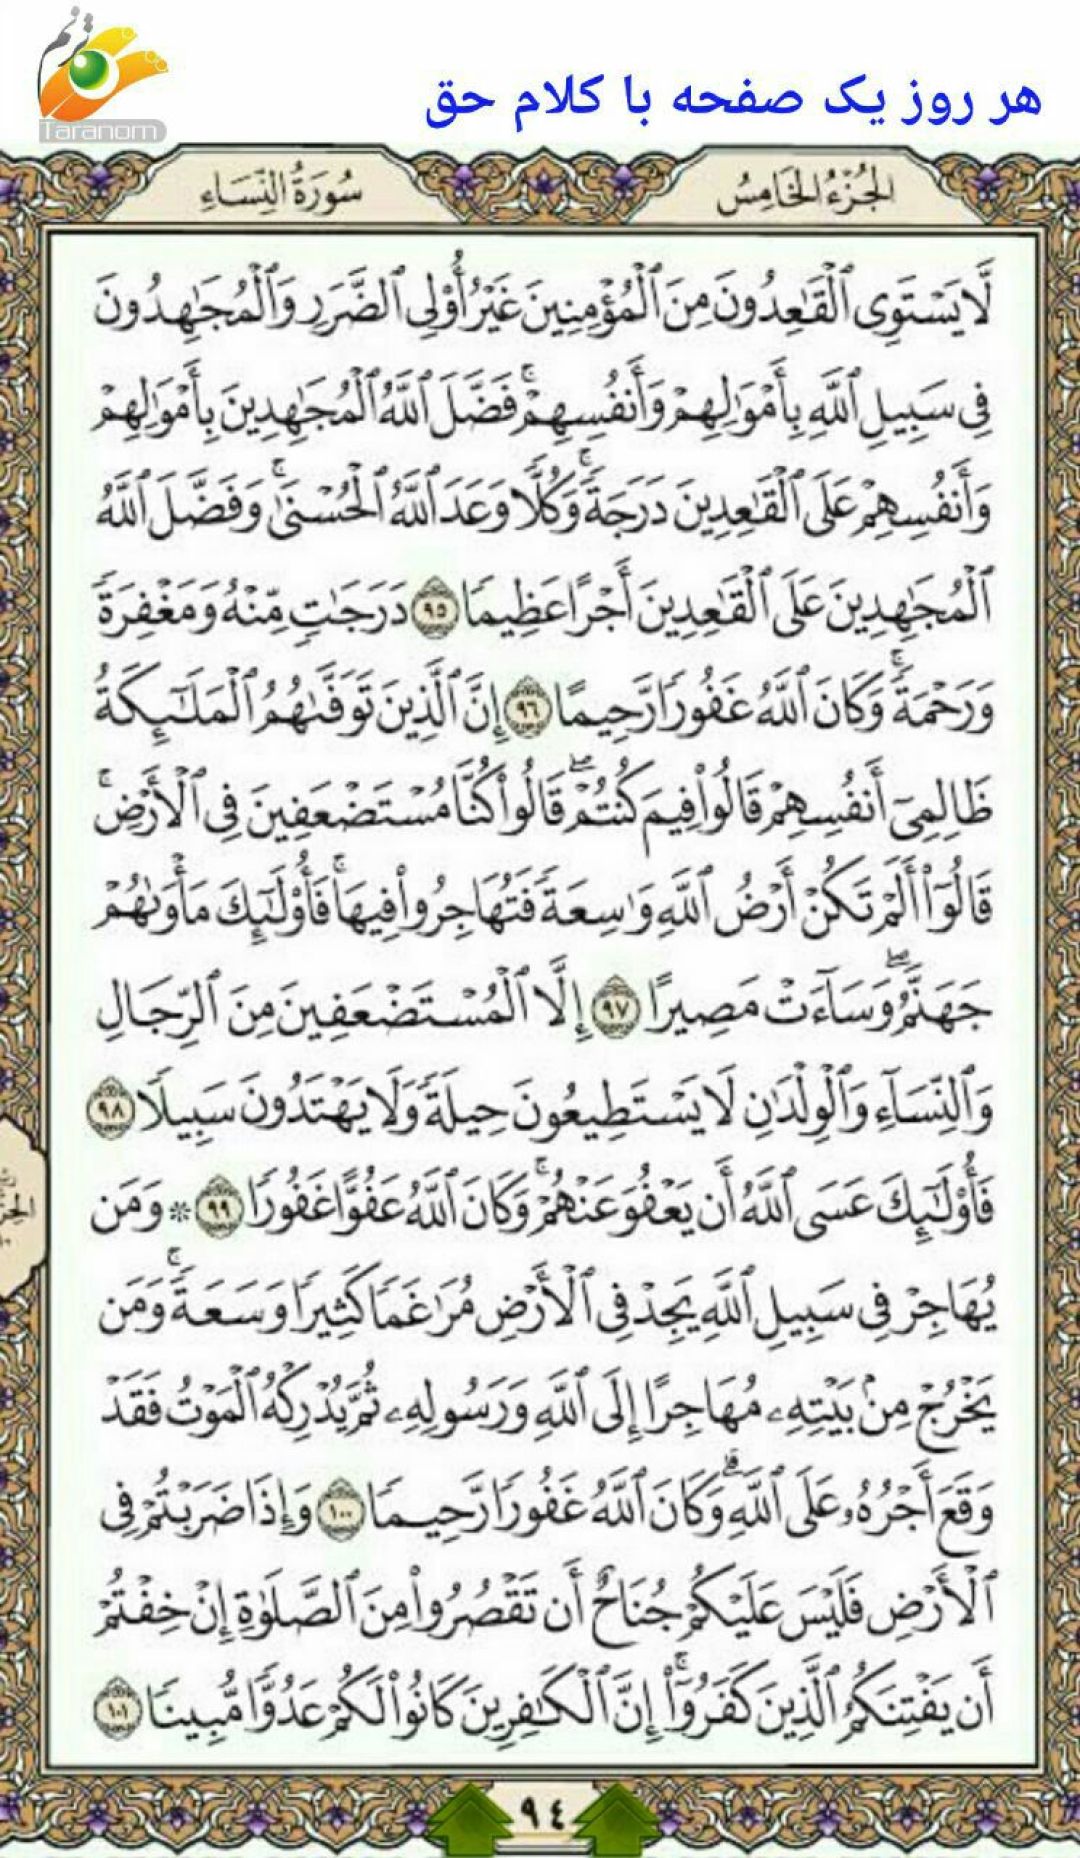 ترنم
Taranom
هر روز یک صفحه با کلام حق
الجُزْءُ الخَامِسُ
سُورَةُ النِّسَاءِ
لَّا يَسْتَوِي ٱلْقَـٰعِدُونَ مِنَ ٱلْمُؤْمِنِينَ غَيْرُ أُو۟لِي ٱلضَّرَرِ وَٱلْمُجَـٰهِدُونَ
فِي سَبِيلِ ٱللَّهِ بِأَمْوَٰلِهِمْ وَأَنفُسِهِمْ ۚ فَضَّلَ ٱللَّهُ ٱلْمُجَـٰهِدِينَ بِأَمْوَٰلِهِمْ
وَأَنفُسِهِمْ عَلَى ٱلْقَـٰعِدِينَ دَرَجَةً ۚ وَكُلًّا وَعَدَ ٱللَّهُ ٱلْحُسْنَىٰ ۚ وَفَضَّلَ ٱللَّهُ
ٱلْمُجَـٰهِدِينَ عَلَى ٱلْقَـٰعِدِينَ أَجْرًا عَظِيمًا ٩٥ دَرَجَـٰتٍ مِّنْهُ وَمَغْفِرَةً
وَرَحْمَةً ۚ وَكَانَ ٱللَّهُ غَفُورًا رَّحِيمًا ٩٦ إِنَّ ٱلَّذِينَ تَوَفَّىٰهُمُ ٱلْمَلَـٰٓئِكَةُ
ظَالِمِيٓ أَنفُسِهِمْ قَالُوا۟ فِيمَ كُنتُمْ ۖ قَالُوا۟ كُنَّا مُسْتَضْعَفِينَ فِي ٱلْأَرْضِ ۚ
قَالُوٓا۟ أَلَمْ تَكُنْ أَرْضُ ٱللَّهِ وَٰسِعَةً فَتُهَاجِرُوا۟ فِيهَا ۚ فَأُو۟لَـٰٓئِكَ مَأْوَىٰهُمْ
جَهَنَّمُ ۖ وَسَآءَتْ مَصِيرًا ٩٧ إِلَّا ٱلْمُسْتَضْعَفِينَ مِنَ ٱلرِّجَالِ
وَٱلنِّسَآءِ وَٱلْوِلْدَٰنِ لَا يَسْتَطِيعُونَ حِيلَةً وَلَا يَهْتَدُونَ سَبِيلًا ٩٨
فَأُو۟لَـٰٓئِكَ عَسَى ٱللَّهُ أَن يَعْفُوَ عَنْهُمْ ۚ وَكَانَ ٱللَّهُ عَفُوًّا غَفُورًا ٩٩ * وَمَن
يُهَاجِرْ فِي سَبِيلِ ٱللَّهِ يَجِدْ فِي ٱلْأَرْضِ مُرَٰغَمًا كَثِيرًا وَسَعَةً ۚ وَمَن
يَخْرُجْ مِنۢ بَيْتِهِۦ مُهَاجِرًا إِلَى ٱللَّهِ وَرَسُولِهِۦ ثُمَّ يُدْرِكْهُ ٱلْمَوْتُ فَقَدْ
وَقَعَ أَجْرُهُۥ عَلَى ٱللَّهِ ۗ وَكَانَ ٱللَّهُ غَفُورًا رَّحِيمًا ١٠٠ وَإِذَا ضَرَبْتُمْ فِي
ٱلْأَرْضِ فَلَيْسَ عَلَيْكُمْ جُنَاحٌ أَن تَقْصُرُوا۟ مِنَ ٱلصَّلَوٰةِ إِنْ خِفْتُمْ
أَن يَفْتِنَكُمُ ٱلَّذِينَ كَفَرُوٓا۟ ۚ إِنَّ ٱلْكَـٰفِرِينَ كَانُوا۟ لَكُمْ عَدُوًّا مُّبِينًا ١٠١
٩٤